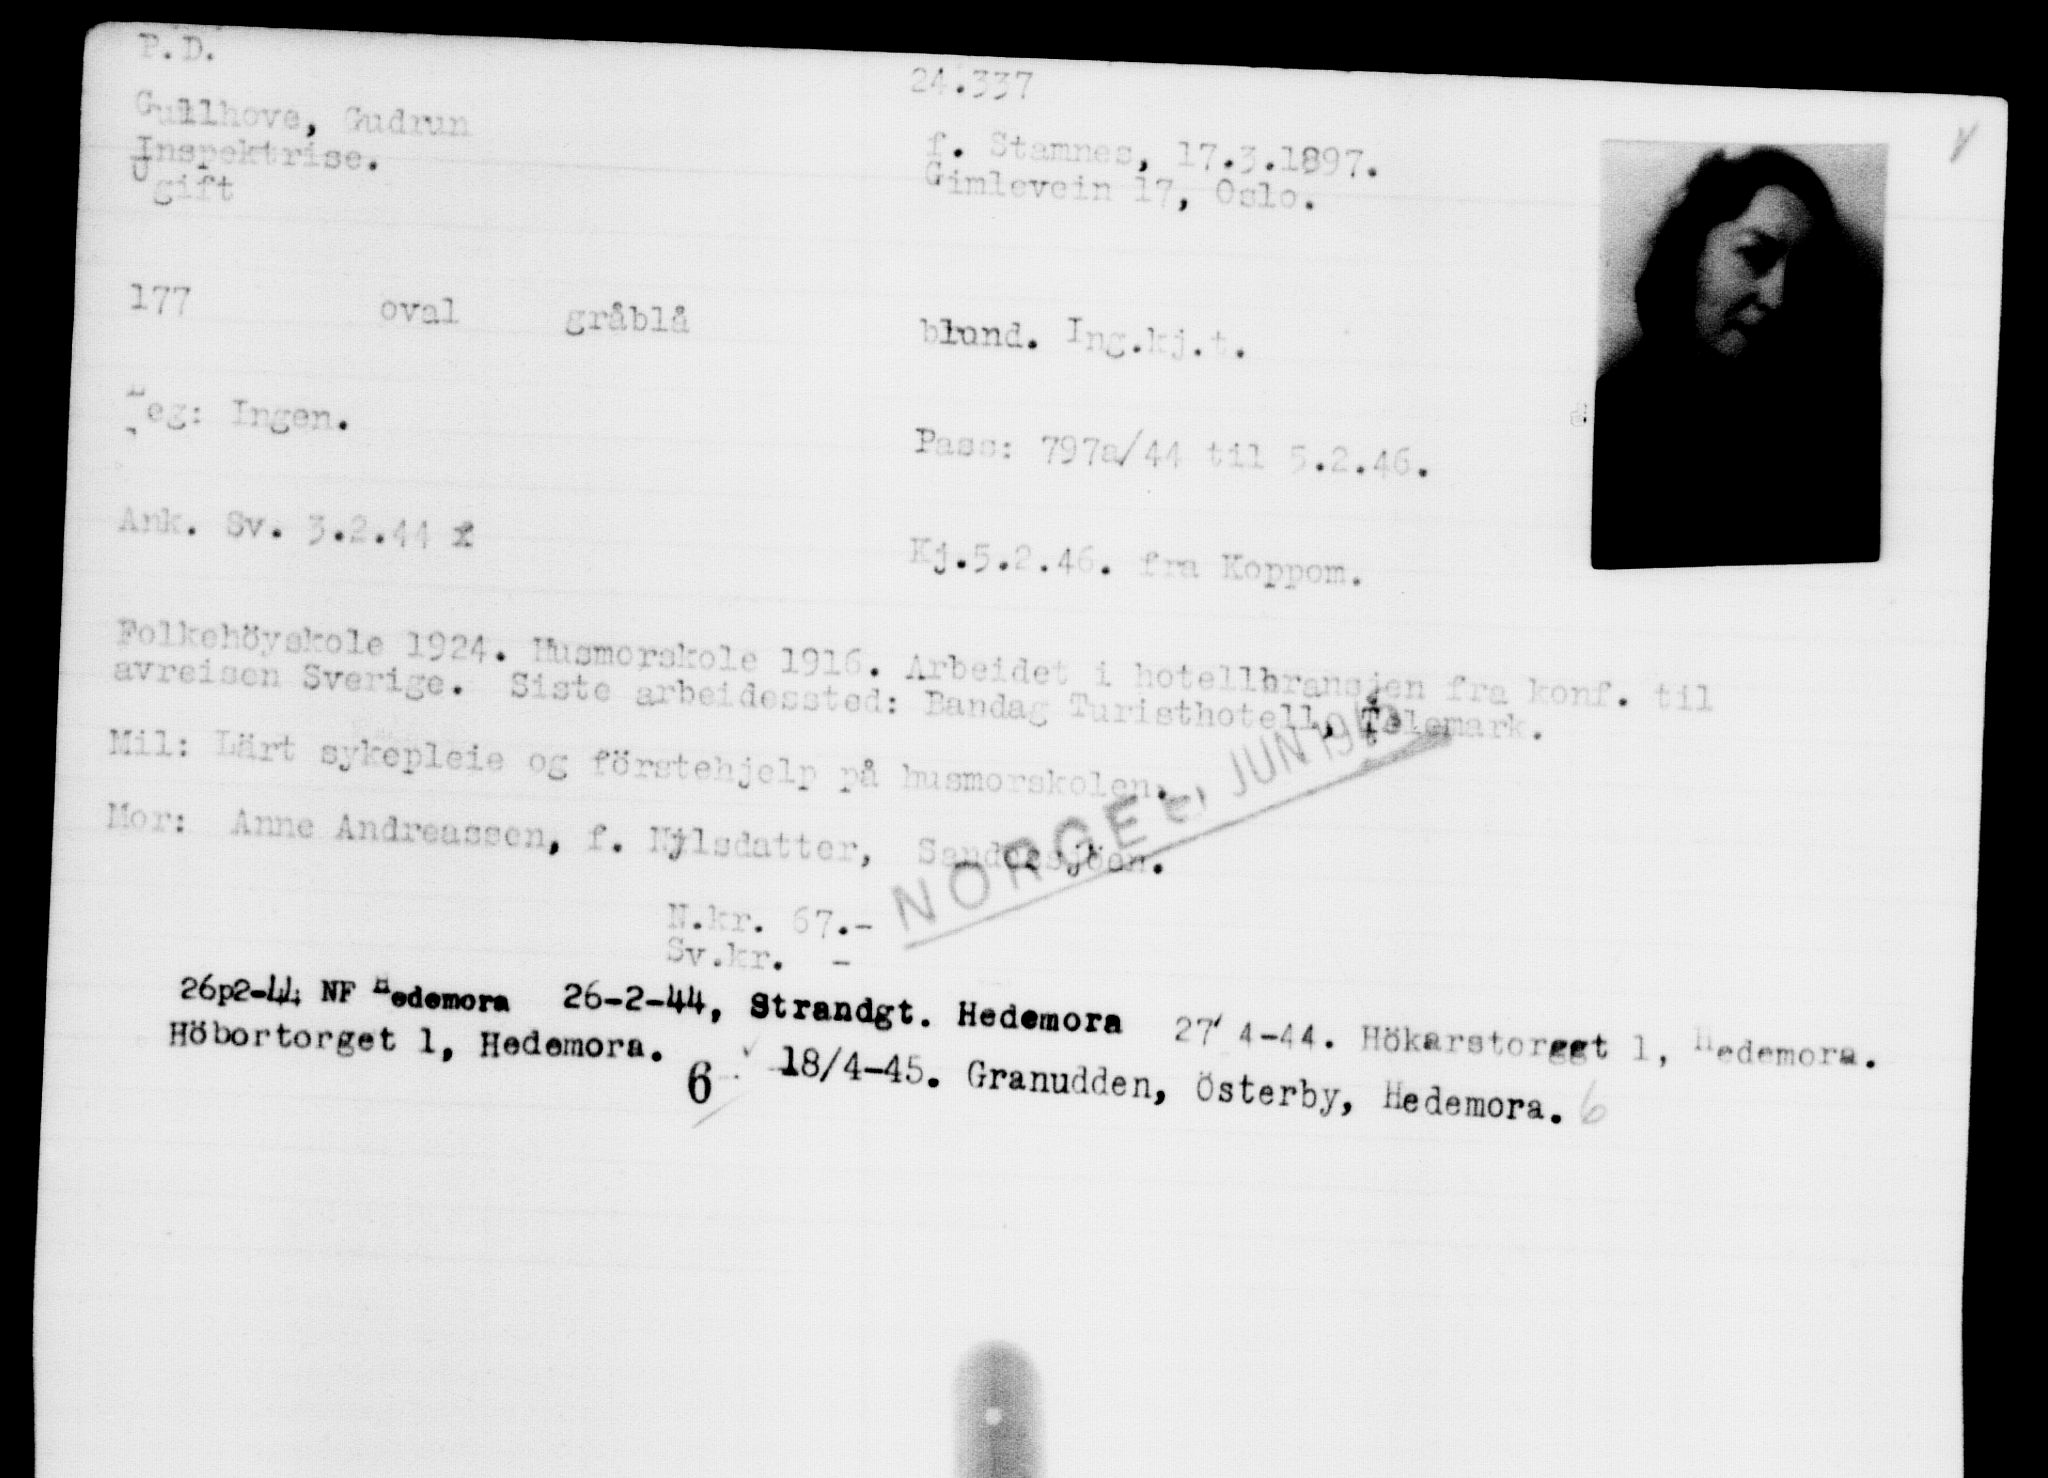 P.D.
24.337
Gullhove, Gudrun
f. Stamnes, 17.3.1897.
Inspektrise.
Gimlevein 17, Oslo.
Ugift
177 oval gråblå
blond. Ing.kj.t.
Leg: Ingen.
Pass: 797a/44 til 5.2.46.
Ank. Sv. 3.2.44
Kj.5.2.46. fra Koppom.
Folkehöyskole 1924. Husmorskole 1916. Arbeidet i hotellbransjen fra konf. til
avreisen Sverige. Siste arbeidessted: Bandag Turisthotell, Telemark.
Mil: Lärt sykepleie og förstehjelp på husmorskolen.
Mor: Anne Andreassen, f. Njlsdatter, Sandnesjöen.
NORGE JUN
N.kr. 67.-
Sv.kr. -
26p2-44 NF Hedemora 26-2-44, Strandgt. Hedemora 27' 4-44. Hökarstorget 1, Hedemora.
Höbortorget 1, Hedemora. 6 18/4-45. Granudden, Österby, Hedemora. 6